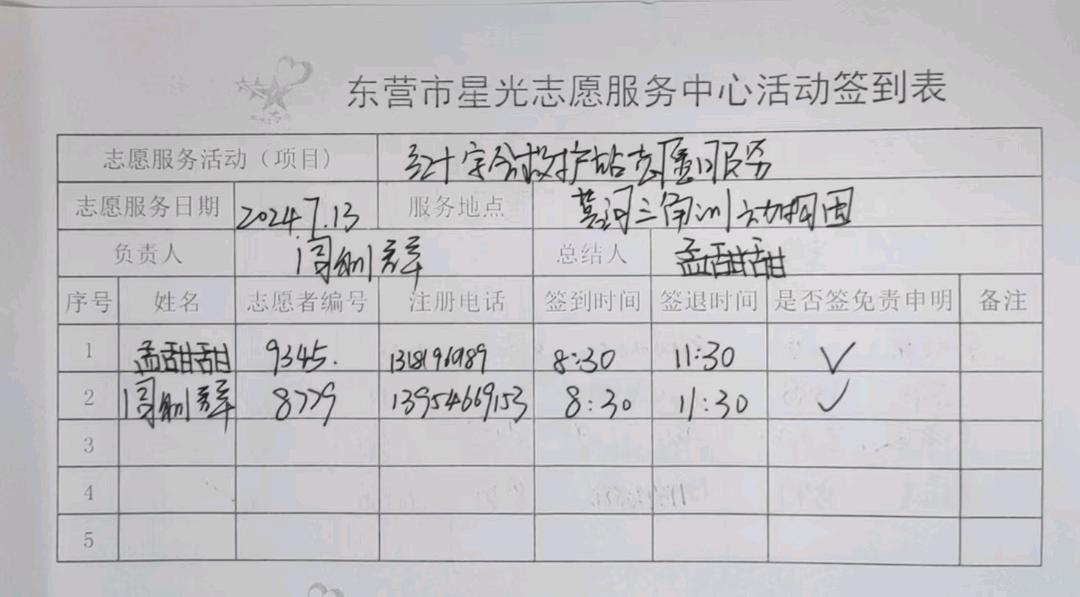 东营市星光志愿服务中心活动签到表
志愿服务活动（项目） 红十字会救护站志愿服务
志愿服务日期 2024.7.13 服务地点 黄河三角洲动物园
负责人 总结人 孟甜甜
序号 姓名 志愿者编号 注册电话 签到时间 签退时间 是否签免责申明 备注
1 孟甜甜 9345. 8:30 11:30 ✓
2 8779 13954669153 8:30 11:30 ✓
3
4
5